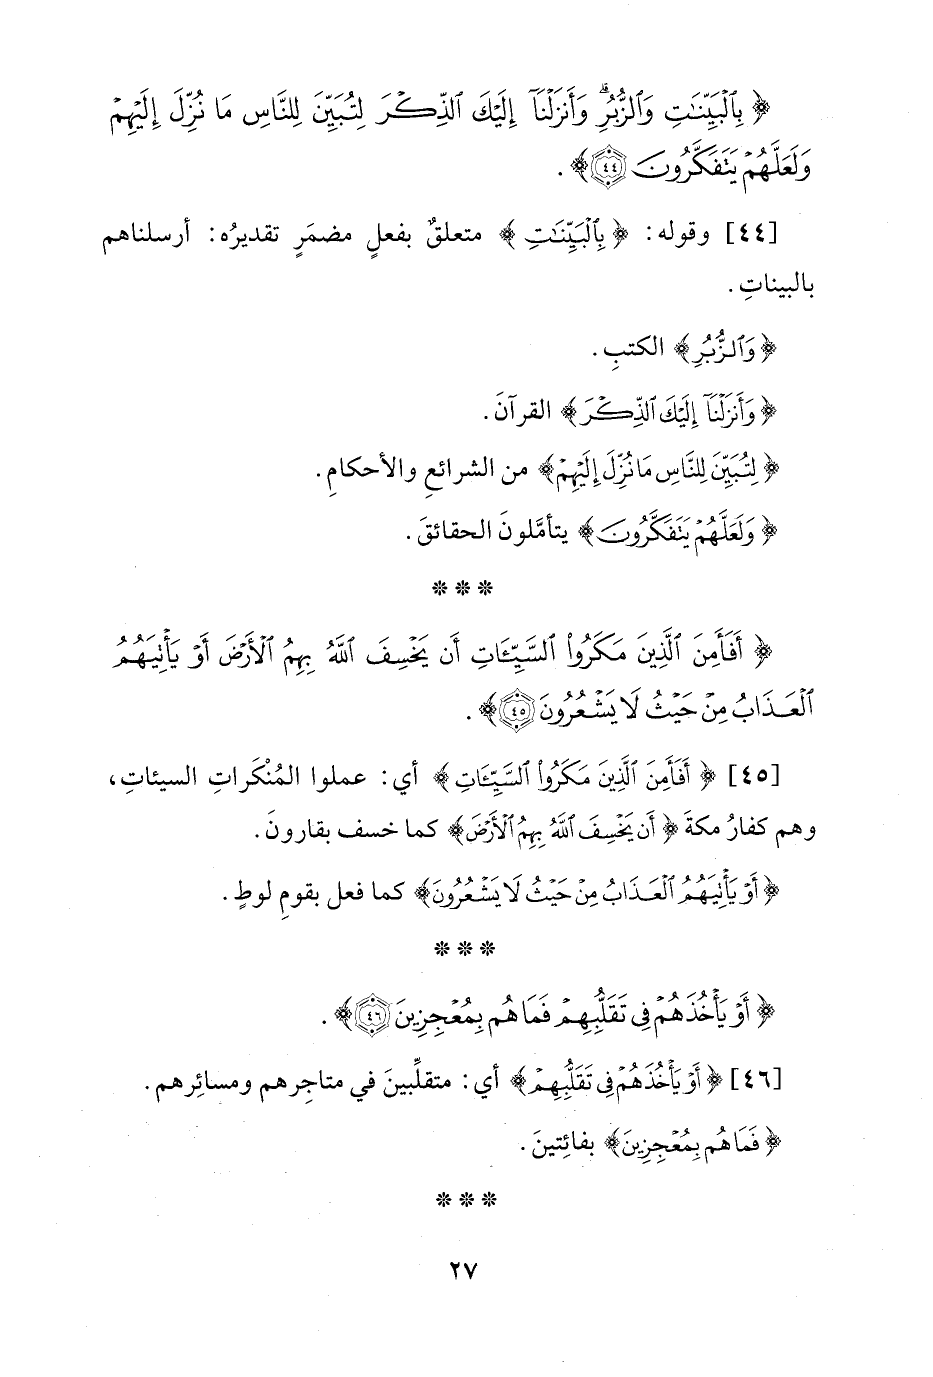 ﴿ بِالْبَيِّنَاتِ وَالزُّبُرِ ۗ وَأَنزَلْنَا إِلَيْكَ الذِّكْرَ لِتُبَيِّنَ لِلنَّاسِ مَا نُزِّلَ إِلَيْهِمْ
وَلَعَلَّهُمْ يَتَفَكَّرُونَ ٤٤ ﴾ .
[٤٤] وقوله: ﴿ بِالْبَيِّنَاتِ ﴾ متعلقٌ بفعلٍ مضمَرٍ تقديرُه: أرسلناهم
بالبيناتِ .
﴿ وَالزُّبُرِ ﴾ الكتبِ .
﴿ وَأَنزَلْنَا إِلَيْكَ الذِّكْرَ ﴾ القرآنَ .
﴿ لِتُبَيِّنَ لِلنَّاسِ مَا نُزِّلَ إِلَيْهِمْ ﴾ من الشرائعِ والأحكامِ .
﴿ وَلَعَلَّهُمْ يَتَفَكَّرُونَ ﴾ يتأمَّلونَ الحقائقَ .
* * *
﴿ أَفَأَمِنَ الَّذِينَ مَكَرُوا السَّيِّئَاتِ أَن يَخْسِفَ اللَّهُ بِهِمُ الْأَرْضَ أَوْ يَأْتِيَهُمُ
الْعَذَابُ مِنْ حَيْثُ لَا يَشْعُرُونَ ٤٥ ﴾ .
[٤٥] ﴿ أَفَأَمِنَ الَّذِينَ مَكَرُوا السَّيِّئَاتِ ﴾ أي: عملوا المُنْكَراتِ السيئاتِ،
وهم كفارُ مكةَ ﴿ أَن يَخْسِفَ اللَّهُ بِهِمُ الْأَرْضَ ﴾ كما خسف بقارونَ .
﴿ أَوْ يَأْتِيَهُمُ الْعَذَابُ مِنْ حَيْثُ لَا يَشْعُرُونَ ﴾ كما فعل بقومِ لوطٍ .
* * *
﴿ أَوْ يَأْخُذَهُمْ فِي تَقَلُّبِهِمْ فَمَا هُم بِمُعْجِزِينَ ٤٦ ﴾ .
[٤٦] ﴿ أَوْ يَأْخُذَهُمْ فِي تَقَلُّبِهِمْ ﴾ أي: متقلِّبينَ في متاجرِهم ومسائِرهم .
﴿ فَمَا هُم بِمُعْجِزِينَ ﴾ بفائِتينَ .
* * *
٢٧